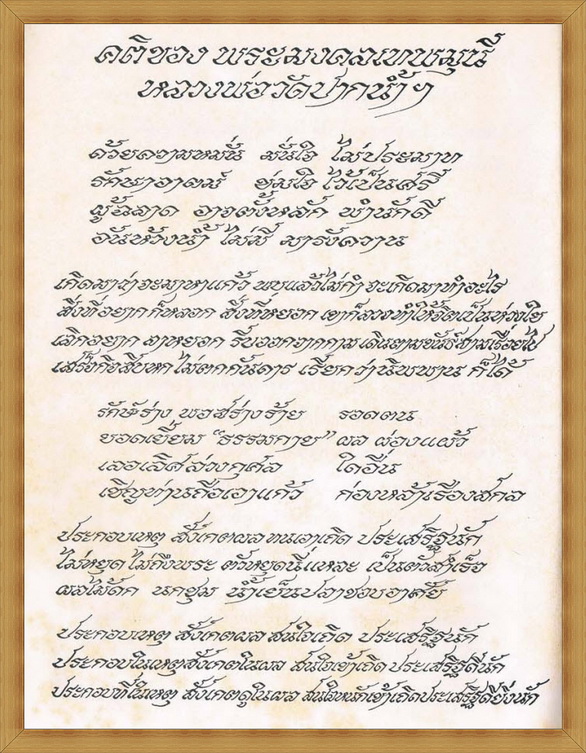 คติของ พระมงคลเทพมุนี
หลวงพ่อวัดปากน้ำฯ
ด้วยความหมั่น มั่นใจ ไม่ประมาท
รักษาอาตม์ ข่มใจ ไว้เป็นศรี
ผู้ฉลาด อาจตั้งหลัก พำนักดี
อันห้วงน้ำ ไม่มี มารังควาน
เกิดมาว่าจะมาหาแก้ว พบแล้วไม่กำ จะเกิดมาทำอะไร
สิ่งที่อยาก ก็หลอก สิ่งที่หยอก เขาก็ลวงทำให้จิตเป็นห่วงใย
เลิกอยาก ลาหยอก รีบออกจากกาม เดินตามขันธ์สามเรื่อยไป
เสร็จกิจสิบหก ไม่ตกกันดาร เรียกว่านิพพาน ก็ได้
รักษ์ร่าง พอสร่างร้าย รอดตน
ยอดเยี่ยม "ธรรมกาย" ผล ผ่องแผ้ว
เลอเลิศล่วงกุศล ใดอื่น
เชิญท่านถือเอาแก้ว ก่องหล้าเรืองสกล
ประกอบเหตุ สังเกตผล ทนเอาเถิด ประเสริฐนัก
ไม่หยุด ไม่ถึงพระ ตัวหยุดนี่แหละ เป็นตัวสำเร็จ
ผลไม้ดก นกชุม น้ำเย็นปลาชอบอาศัย
ประกอบเหตุ สังเกตผล สนใจเถิด ประเสริฐนัก
ประกอบในเหตุสังเกตในผล สนใจเข้าเถิด ประเสริฐดีนัก
ประกอบที่ในเหตุ สังเกตดูในผล สนใจหนักเข้าเถิดประเสริฐดียิ่งนัก